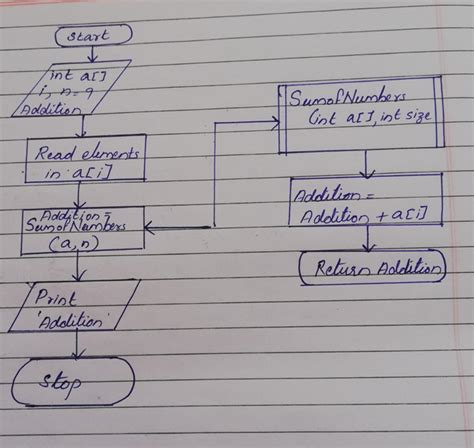 Start
int a[]
i, n=9
Addition
Read elements
in a[i]
Addition =
SumofNumbers
(a,n)
Print
'Addition'
Stop
SumofNumbers
(int a[], int size
Addition =
Addition + a[i]
Return Addition